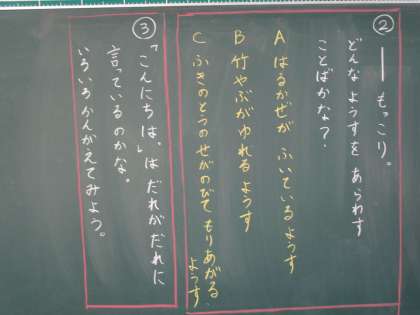 ②
―もっこり。
どんなようすを あらわす
ことばかな？
A はるかぜが ふいているようす
B 竹やぶがゆれるようす
C ふきのとうのせがのびて もりあがる
ようす
③
「こんにちは。」は だれがだれに
言っているのかな。
いろいろかんがえてみよう。